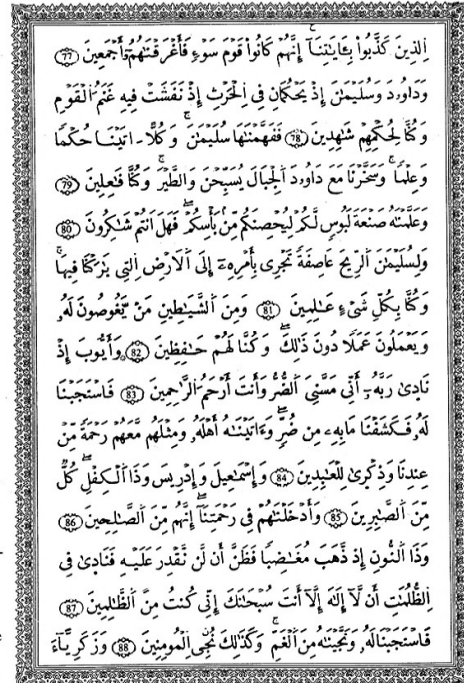 اِ۬لذِينَ كَذَّبُواْ بِـَٔايَٰتِنَآۖ إِنَّهُمْ كَانُواْ قَوْمَ سَوْءٖ فَأَغْرَقْنَٰهُمُۥٓ أَجْمَعِينَ 77
وَدَاوُۥدَ وَسُلَيْمَٰنَ إِذْ يَحْكُمَٰنِ فِي اِ۬لْحَرْثِ إِذْ نَفَشَتْ فِيهِ غَنَمُ اُ۬لْقَوْمِ
وَكُنَّا لِحُكْمِهِمْ شَٰهِدِينَ 78 فَفَهَّمْنَٰهَا سُلَيْمَٰنَۖ وَكُلّاً ـ اتَيْنَا حُكْماٗ
وَعِلْماٗۖ وَسَخَّرْنَا مَعَ دَاوُۥدَ اَ۬لْجِبَالَ يُسَبِّحْنَ وَالطَّيْرَۖ وَكُنَّا فَٰعِلِينَ 79
وَعَلَّمْنَٰهُ صَنْعَةَ لَبُوسٖ لَّكُمْ لِيُحْصِنَكُم مِّنۢ بَأْسِكُمْۖ فَهَلَ اَنتُمْ شَٰكِرُونَ 80
وَلِسُلَيْمَٰنَ اَ۬لرِّيحَ عَاصِفَةٗ تَجْرِي بِأَمْرِهِۦٓ إِلَى اَ۬لَارْضِ اِ۬لتِي بَٰرَكْنَا فِيهَاۖ
وَكُنَّا بِكُلِّ شَيْءٍ عَٰلِمِينَ 81 وَمِنَ اَ۬لشَّيَٰطِينِ مَنْ يَّغُوصُونَ لَهُۥ
وَيَعْمَلُونَ عَمَلاٗ دُونَ ذَٰلِكَۖ وَكُنَّا لَهُمْ حَٰفِظِينَ 82 وَأَيُّوبَ إِذْ
نَادَىٰ رَبَّهُۥٓ أَنِّي مَسَّنِيَ اَ۬لضُّرُّ وَأَنتَ أَرْحَمُ اُ۬لرَّٰحِمِينَ 83 فَاسْتَجَبْنَا
لَهُۥ فَكَشَفْنَا مَا بِهِۦ مِن ضُرّٖۖ وَءَاتَيْنَٰهُ أَهْلَهُۥ وَمِثْلَهُم مَّعَهُمْ رَحْمَةٗ مِّنْ
عِندِنَا وَذِكْرَىٰ لِلْعَٰبِدِينَ 84 وَإِسْمَٰعِيلَ وَإِدْرِيسَ وَذَا اَ۬لْكِفْلِۖ كُلّٞ
مِّنَ اَ۬لصَّٰبِرِينَ 85 وَأَدْخَلْنَٰهُمْ فِي رَحْمَتِنَآۖ إِنَّهُم مِّنَ اَ۬لصَّٰلِحِينَ 86
وَذَا اَ۬لنُّونِ إِذ ذَّهَبَ مُغَٰضِباٗ فَظَنَّ أَن لَّن نَّقْدِرَ عَلَيْهِ فَنَادَىٰ فِي
اِ۬لظُّلُمَٰتِ أَن لَّآ إِلَٰهَ إِلَّآ أَنتَ سُبْحَٰنَكَ إِنِّي كُنتُ مِنَ اَ۬لظَّٰلِمِينَ 87
فَاسْتَجَبْنَا لَهُۥ وَنَجَّيْنَٰهُ مِنَ اَ۬لْغَمِّۖ وَكَذَٰلِكَ نُۨجِي اِ۬لْمُومِنِينَ 88 وَزَكَرِيَّآءَ